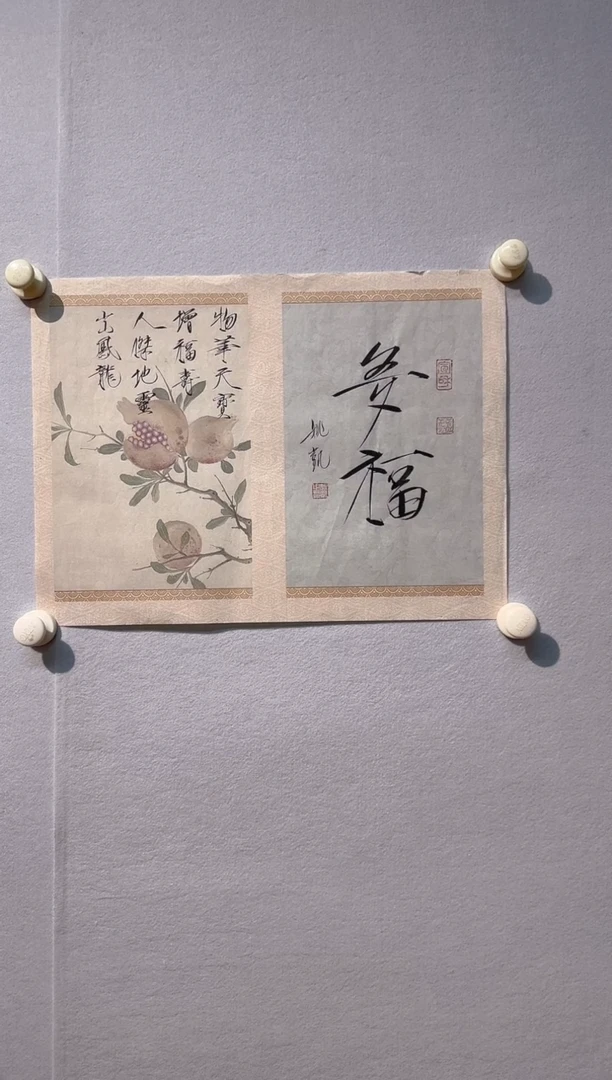 多福
物華天寶
增福壽
人傑地靈
出鳳龍